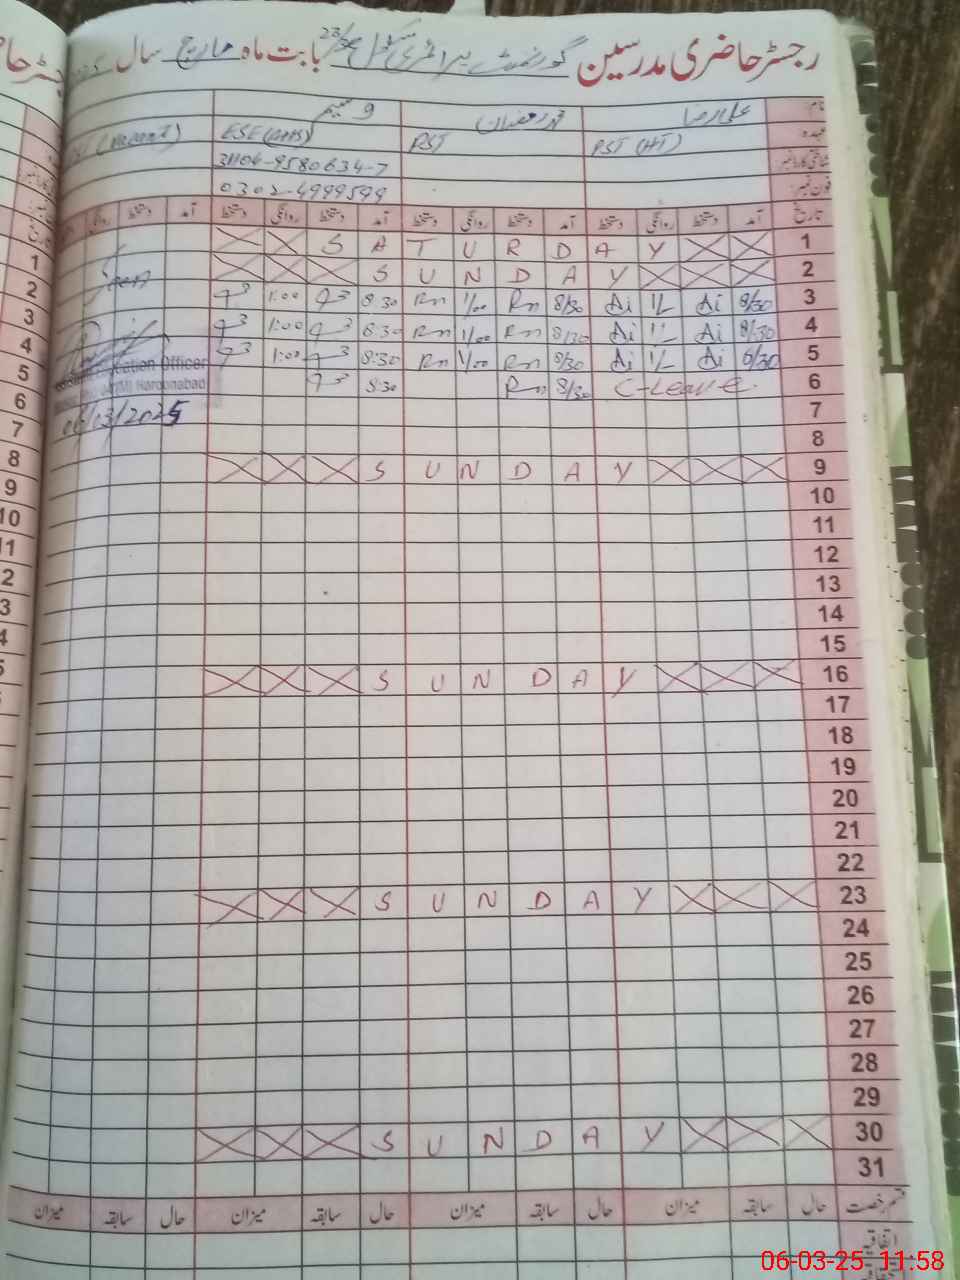 رجسٹر حاضری مدرسین گورنمنٹ پرائمری سکول 23 بابت ماہ مارچ سال
نام: علی رضا محمد رمضان وسیم
عہدہ PST (HT) PST ESE (
شناختی کارڈ نمبر 31104-9580634-7
فون نمبر: 0302-4999599
تاریخ آمد دستخط روانگی دستخط آمد دستخط روانگی دستخط آمد دستخط روانگی دستخط آمد دستخط روانگی
1 S A T U R D A Y
2 S U N D A Y
Seen
3 8/30 Ai 1/- Ai 8/30 Rn 1/00 Rn 8:30 1:00
4 8/30 Ai 1/- Ai 8/30 Rn 1/00 Rn 8:30 1:00
5 8/30 Ai 1/- Ai 8/30 Rn 1/00 Rn 8:30 1:00
Education Officer
6 C-Leave 8/30 Rn 8:30
(M) Haroonabad
06/03/2025
7
8
9 S U N D A Y
10
11
12
13
14
15
16 S U N D A Y
17
18
19
20
21
22
23 S U N D A Y
24
25
26
27
28
29
30 S U N D A Y
31
قسم رخصت حال سابقہ میزان حال سابقہ میزان حال سابقہ میزان حال سابقہ میزان
اتفاقیہ
06-03-25 11:58